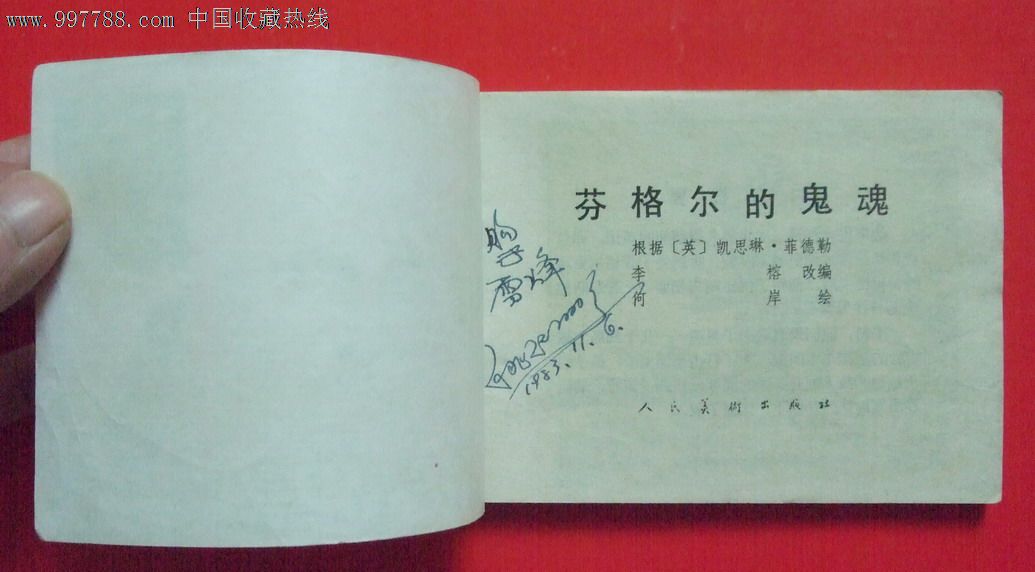 www.997788.com 中国收藏热线
芬格尔的鬼魂
根据〔英〕凯思琳·菲德勒
李 榕 改编
何 岸 绘
购于
雷锋
1983.11.6.
人民美術出版社